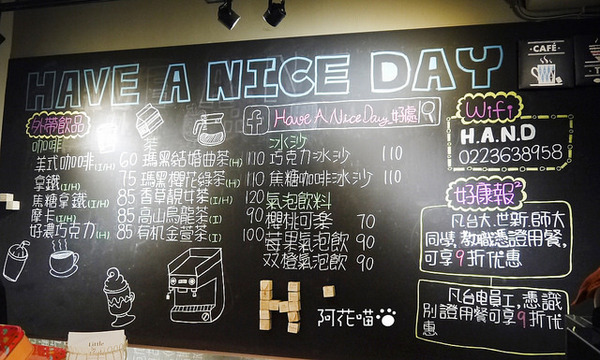 HAVE A NICE DAY
外帶飲品
咖啡
美式咖啡(I/H) 60
拿鐵(I/H) 75
焦糖拿鐵(I/H) 85
摩卡(I/H) 85
好濃巧克力(I/H) 85
茶
瑪黑結婚曲茶(H) 110
瑪黑櫻花綠茶(H) 110
香草靚女茶(I/H) 120
高山烏龍茶(I) 90
有机金萱茶(I) 100
f Have A Nice Day 好處
冰沙
巧克力冰沙 110
焦糖咖啡冰沙 110
氣泡飲料
櫻桃可樂 70
莓果氣泡飲 90
双橙氣泡飲 90
H
阿花喵
CAFÉ
Wifi
H.A.N.D
0223638958
好康報
凡台大、世新、師大
同學,教職憑證用餐,
可享9折优惠
凡台电員工,憑識
別證用餐可享9折优
惠
Little